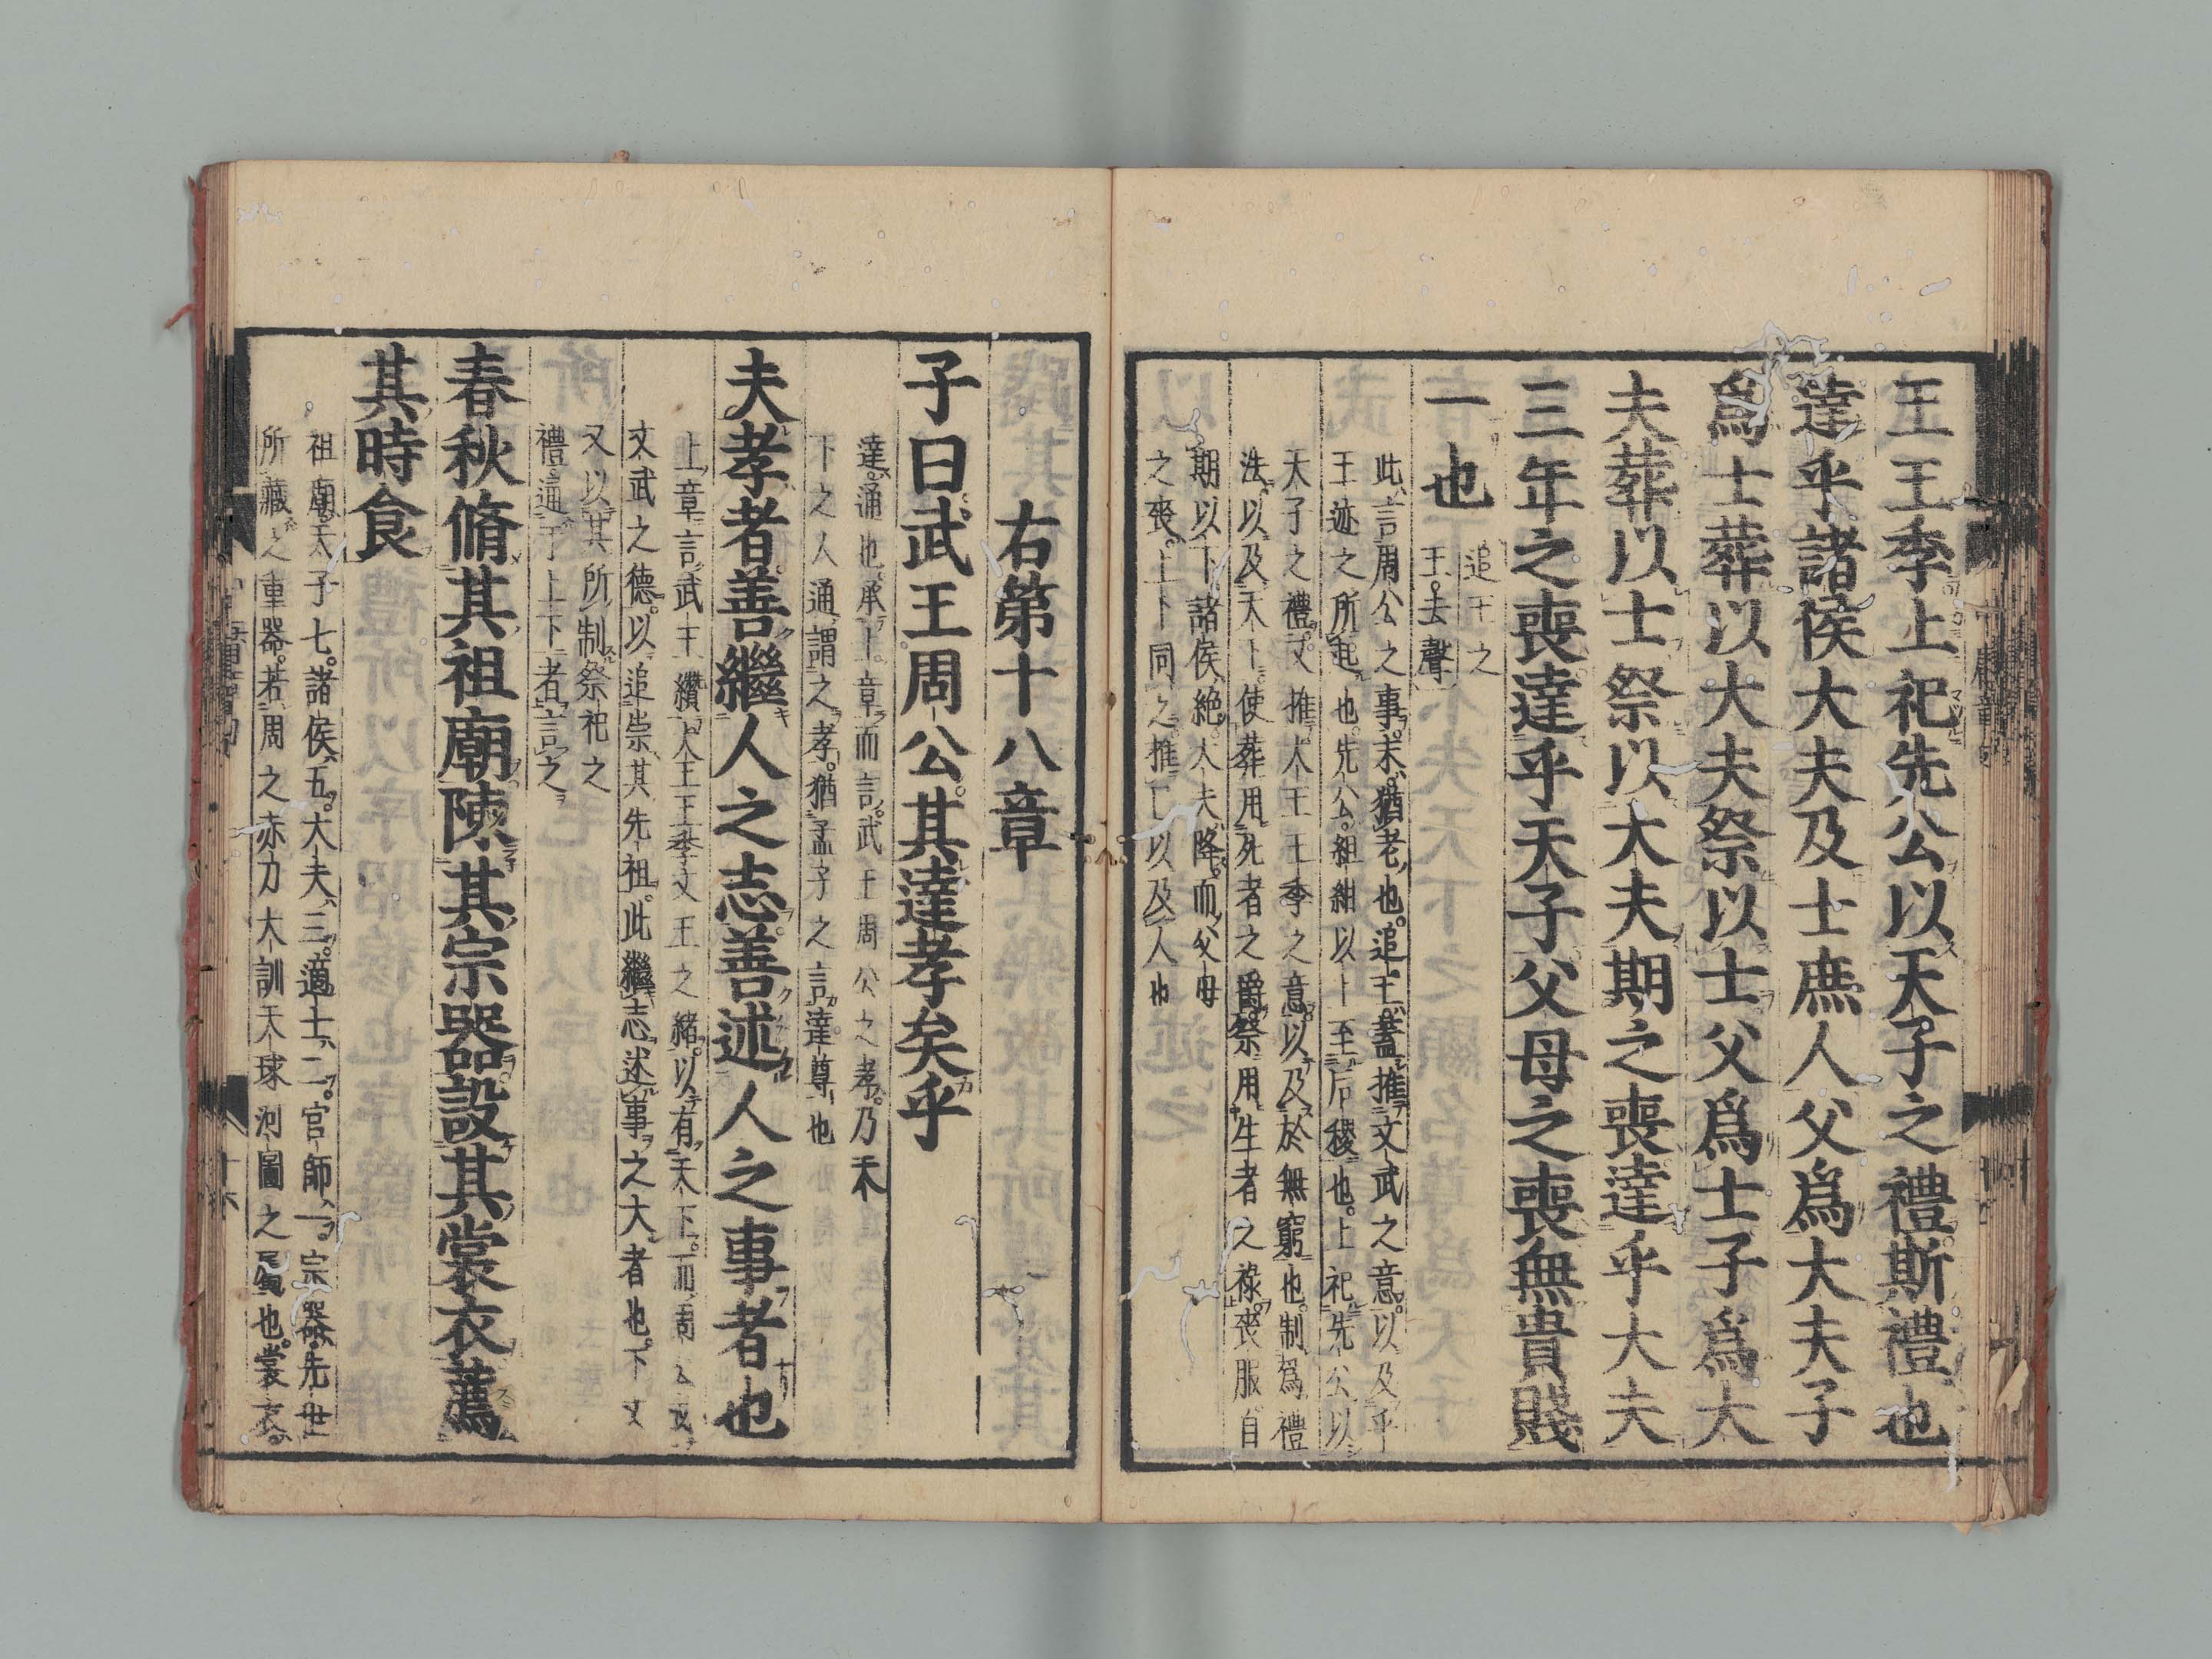 王王季上祀先公以天子之禮斯禮也
達乎諸侯大夫及士庶人父爲大夫子
爲士葬以大夫祭以士父爲士子爲大
夫葬以士祭以大夫期之喪達乎大夫
三年之喪達乎天子父母之喪無貴賤
一也
追王之
王去聲
此言周公之事。末、猶老也。追王、蓋推文武之意。以及乎
王迹之所起也。先公。組紺以上至后稷也。上祀先公以
天子之禮。又推大王王季之意。以及於無窮也。制爲禮
法。以及天下。使葬用死者之爵。祭用生者之祿。喪服自
期以下。諸侯絶。大夫降。而父母
之喪。上下同之。推己以及人也
右第十八章
子曰武王周公其達孝矣乎
達。通也。承上章而言。武王周公之孝。乃天
下之人通謂之孝。猶孟子之言達尊也
夫孝者善繼人之志善述人之事者也
上章言武王纘大王王季文王之緒。以有天下。而周公成
文武之德。以追崇其先祖。此繼志述事之大者也。下文
又以其所制祭祀之
禮。通于上下者言之
春秋脩其祖廟陳其宗器設其裳衣薦
其時食
祖廟。天子七。諸侯五。大夫三。適士二。官師一。宗器。先世
所藏之重器。若周之赤刀大訓天球河圖之屬也。裳衣。